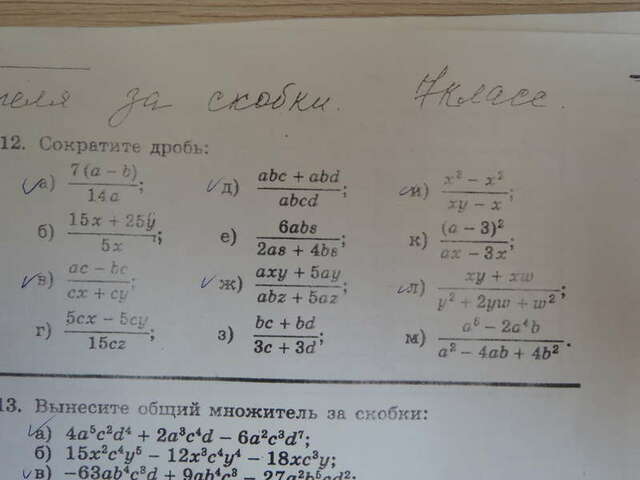 за скобки. 7 класс.
12. Сократите дробь:
а) 7(a − b)/14a; д) (abc + abd)/abcd; и) (x² − x²)/(xy − x);
б) (15x + 25y)/5x; е) 6abs/(2as + 4bs); к) (a − 3)²/(ax − 3x);
в) (ac − bc)/(cx + cy); ж) (axy + 5ay)/(abz + 5az); л) (xy + xw)/(y² + 2yw + w²);
г) (5cx − 5cy)/15cz; з) (bc + bd)/(3c + 3d); м) (a⁵ − 2a⁴b)/(a² − 4ab + 4b²).
13. Вынесите общий множитель за скобки:
а) 4a⁵c²d⁴ + 2a³c⁴d − 6a²c³d⁷;
б) 15x²c⁴y⁵ − 12x³c⁴y⁴ − 18xc³y;
в) −63ab⁴c³d + 9ab⁴c³ − 27a²b⁵cd²;